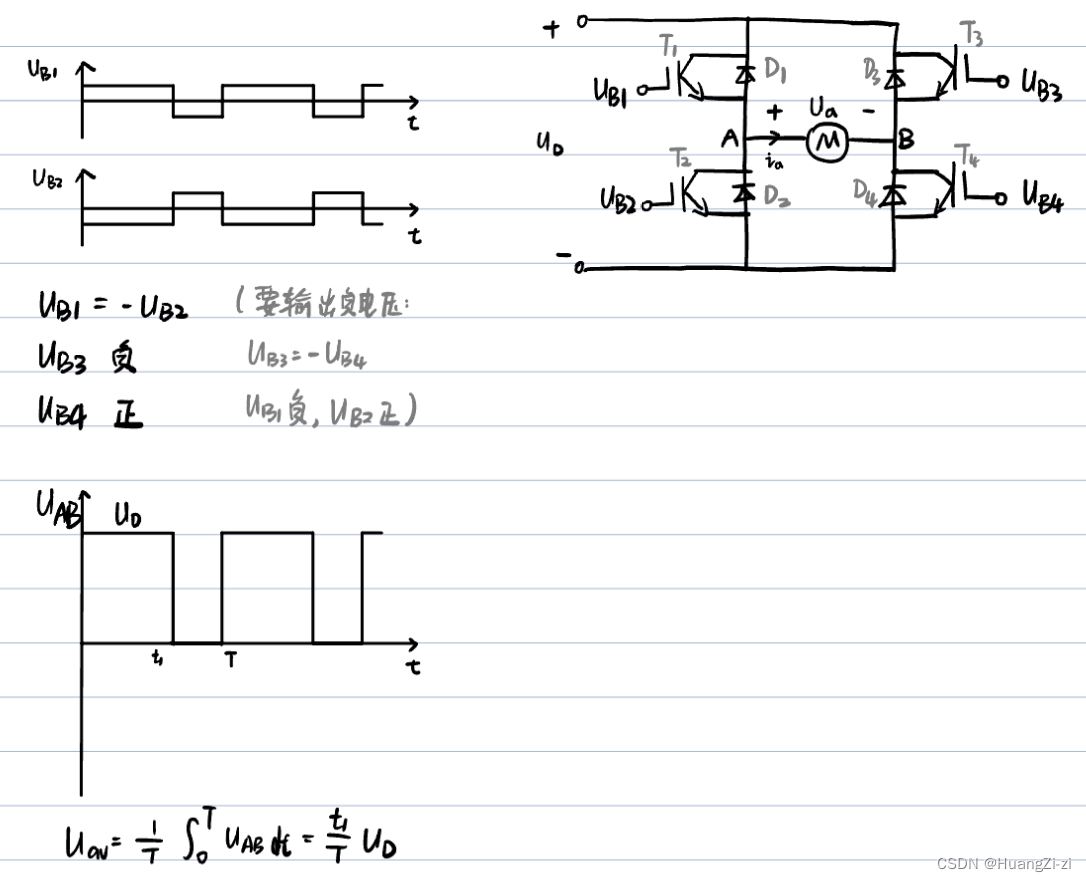 U_B1
t
U_B2
t
+
T1
D1
U_B1
D3
T3
U_B3
+ Ua -
U_D
A
ia
M
B
T2
D2
U_B2
D4
T4
U_B4
-
U_B1 = -U_B2 (要输出负电压:
U_B3 负 U_B3=-U_B4
U_B4 正 U_B1负, U_B2正)
U_AB
U_D
t1 T t
U_av = 1/T ∫_0^T U_AB dt = t1/T U_D
CSDN @HuangZi-zi